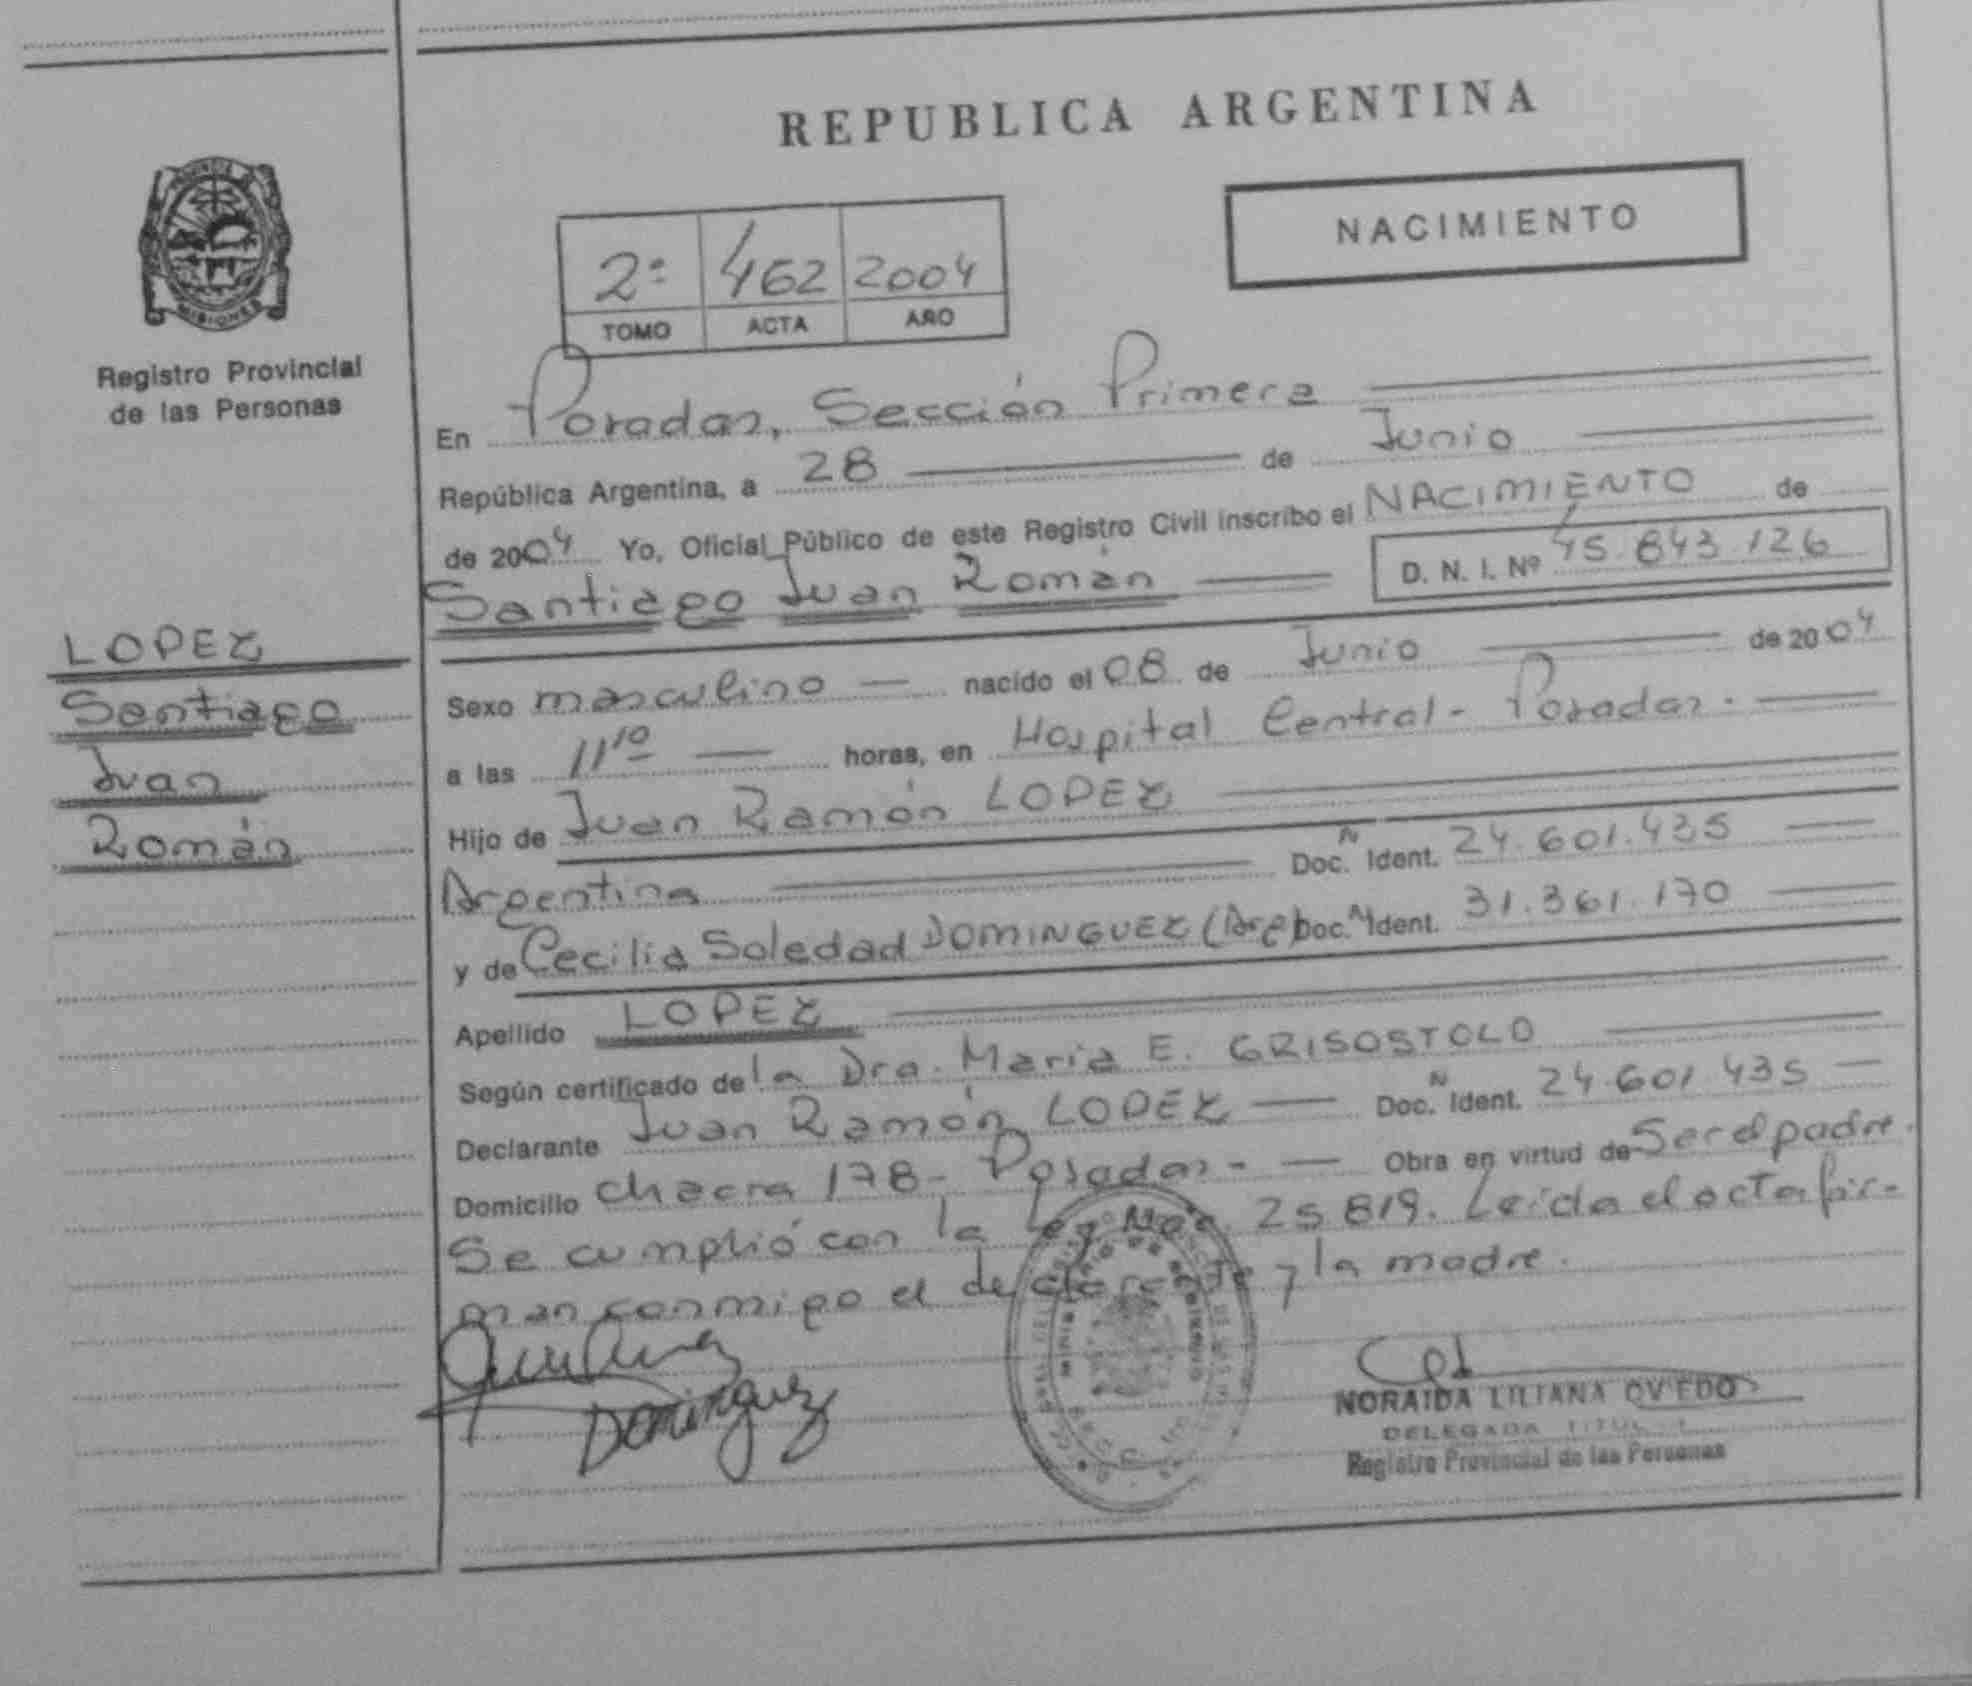 REPUBLICA ARGENTINA
NACIMIENTO
2º 462 2004
TOMO ACTA AÑO
PROVINCIA DE
MISIONES
Registro Provincial
de las Personas
LOPEZ
Santiago
Juan
Román
En Posadas, Sección Primera
República Argentina, a 28 de Junio
de 2004 Yo, Oficial Público de este Registro Civil inscribo el NACIMIENTO de
Santiago Juan Román D. N. I. Nº 45.843.126
Sexo masculino nacido el 08 de Junio de 2004
a las 11 10 horas, en Hospital Central - Posadas.
Hijo de Juan Ramón LOPEZ
Argentina Doc. N Ident. 24.601.435
y de Cecilia Soledad DOMINGUEZ (Arg) Doc. N Ident. 31.361.170
Apellido LOPEZ
Según certificado de la Dra. Maria E. GRISOSTOLO
Declarante Juan Ramón LOPEZ Doc. N Ident. 24.601.435
Domicilio Chacra 178 - Posadas - Obra en virtud de Ser el padre.
Se cumplió con la Ley Nac. 25819. Leída el acta fir-
man conmigo el declarante y la madre.
Dominguez
NORAIDA LILIANA OVIEDO
DELEGADA TITULAR
Registro Provincial de las Personas